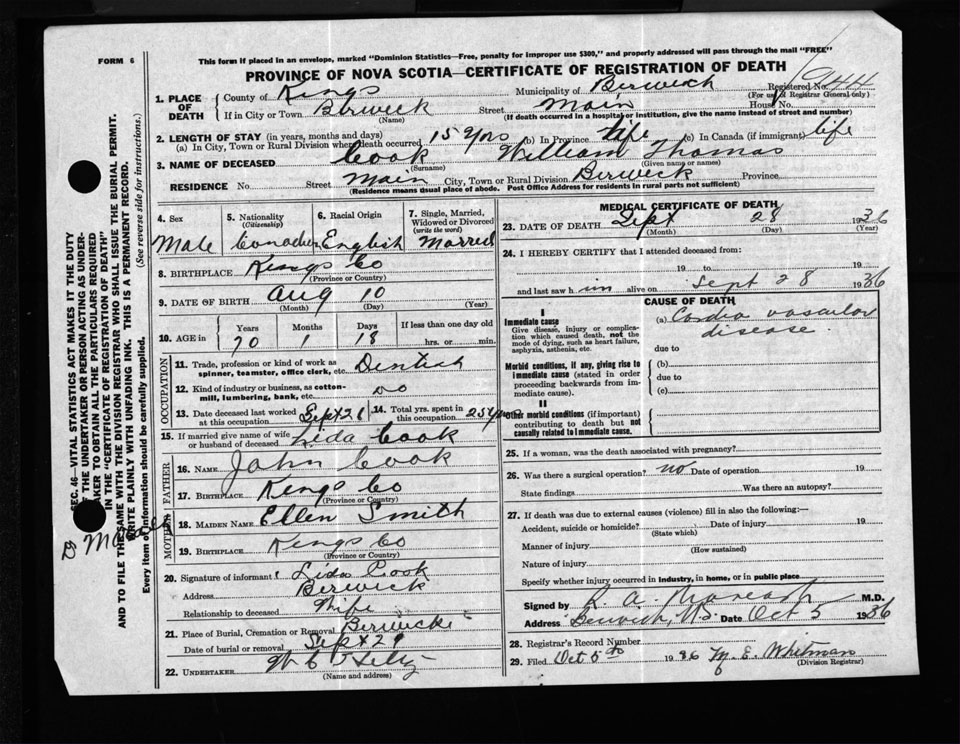 FORM 6
This form if placed in an envelope, marked "Dominion Statistics—Free, penalty for improper use $300," and properly addressed will pass through the mail "FREE"
PROVINCE OF NOVA SCOTIA—CERTIFICATE OF REGISTRATION OF DEATH
1. PLACE OF DEATH
County of Kings Municipality of Berwick Registered No. 944
(For use of Registrar General only)
If in City or Town Berwick Street Main House No.
(Name) (If death occurred in a hospital or institution, give the name instead of street and number)
2. LENGTH OF STAY (in years, months and days)
(a) In City, Town or Rural Division where death occurred 15 yrs (b) In Province life (c) In Canada (if immigrant) life
3. NAME OF DECEASED Cook William Thomas
(Surname) (Given name or names)
RESIDENCE No. Street Main City, Town or Rural Division Berwick Province
(Residence means usual place of abode. Post Office Address for residents in rural parts not sufficient)
4. Sex Male
5. Nationality (Citizenship) Canadian
6. Racial Origin English
7. Single, Married, Widowed or Divorced (write the word) Married
8. BIRTHPLACE Kings Co
(Province or Country)
9. DATE OF BIRTH Aug 10
(Month) (Day) (Year)
10. AGE in Years 70 Months 1 Days 18 If less than one day old hrs. or min.
OCCUPATION
11. Trade, profession or kind of work as spinner, teamster, office clerk, etc. Dentist
12. Kind of industry or business, as cotton-mill, lumbering, bank, etc.
13. Date deceased last worked at this occupation Sept 26
14. Total yrs. spent in this occupation 25 yrs
15. If married give name of wife or husband of deceased Lida Cook
FATHER
16. NAME John Cook
17. BIRTHPLACE Kings Co
(Province or Country)
MOTHER
18. MAIDEN NAME Ellen Smith
19. BIRTHPLACE Kings Co
(Province or Country)
20. Signature of informant Lida Cook
Address Berwick
Relationship to deceased Wife
21. Place of Burial, Cremation or Removal Berwick
Date of burial or removal Sept 29
22. UNDERTAKER
(Name and address)
MEDICAL CERTIFICATE OF DEATH
23. DATE OF DEATH Sept 28 1936
(Month) (Day) (Year)
24. I HEREBY CERTIFY that I attended deceased from:
19 to 19
and last saw him alive on Sept 28 1936
CAUSE OF DEATH
I
Immediate cause
Give disease, injury or complication which caused death, not the mode of dying, such as heart failure, asphyxia, asthenia, etc.
(a) Cardio vascular disease
due to
Morbid conditions, if any, giving rise to immediate cause (stated in order proceeding backwards from immediate cause).
(b)
due to
(c)
II
Other morbid conditions (if important) contributing to death but not causally related to immediate cause.
25. If a woman, was the death associated with pregnancy?
26. Was there a surgical operation? no Date of operation 19
State findings Was there an autopsy?
27. If death was due to external causes (violence) fill in also the following:—
Accident, suicide or homicide? Date of injury 19
(State which)
Manner of injury
(How sustained)
Nature of injury
Specify whether injury occurred in industry, in home, or in public place
Signed by R. A. M.D.
Address Berwick, N.S. Date Oct 5 1936
28. Registrar's Record Number
29. Filed Oct 5th 1936 M. E. Whitman
(Division Registrar)
SEC. 46—VITAL STATISTICS ACT MAKES IT THE DUTY OF THE UNDERTAKER OR PERSON ACTING AS UNDERTAKER TO OBTAIN ALL THE PARTICULARS REQUIRED IN THE "CERTIFICATE OF REGISTRATION OF DEATH" AND TO FILE THE SAME WITH THE DIVISION REGISTRAR WHO SHALL ISSUE THE BURIAL PERMIT.
WRITE PLAINLY WITH UNFADING INK. THIS IS A PERMANENT RECORD.
Every item of information should be carefully supplied. (See reverse side for instructions.)